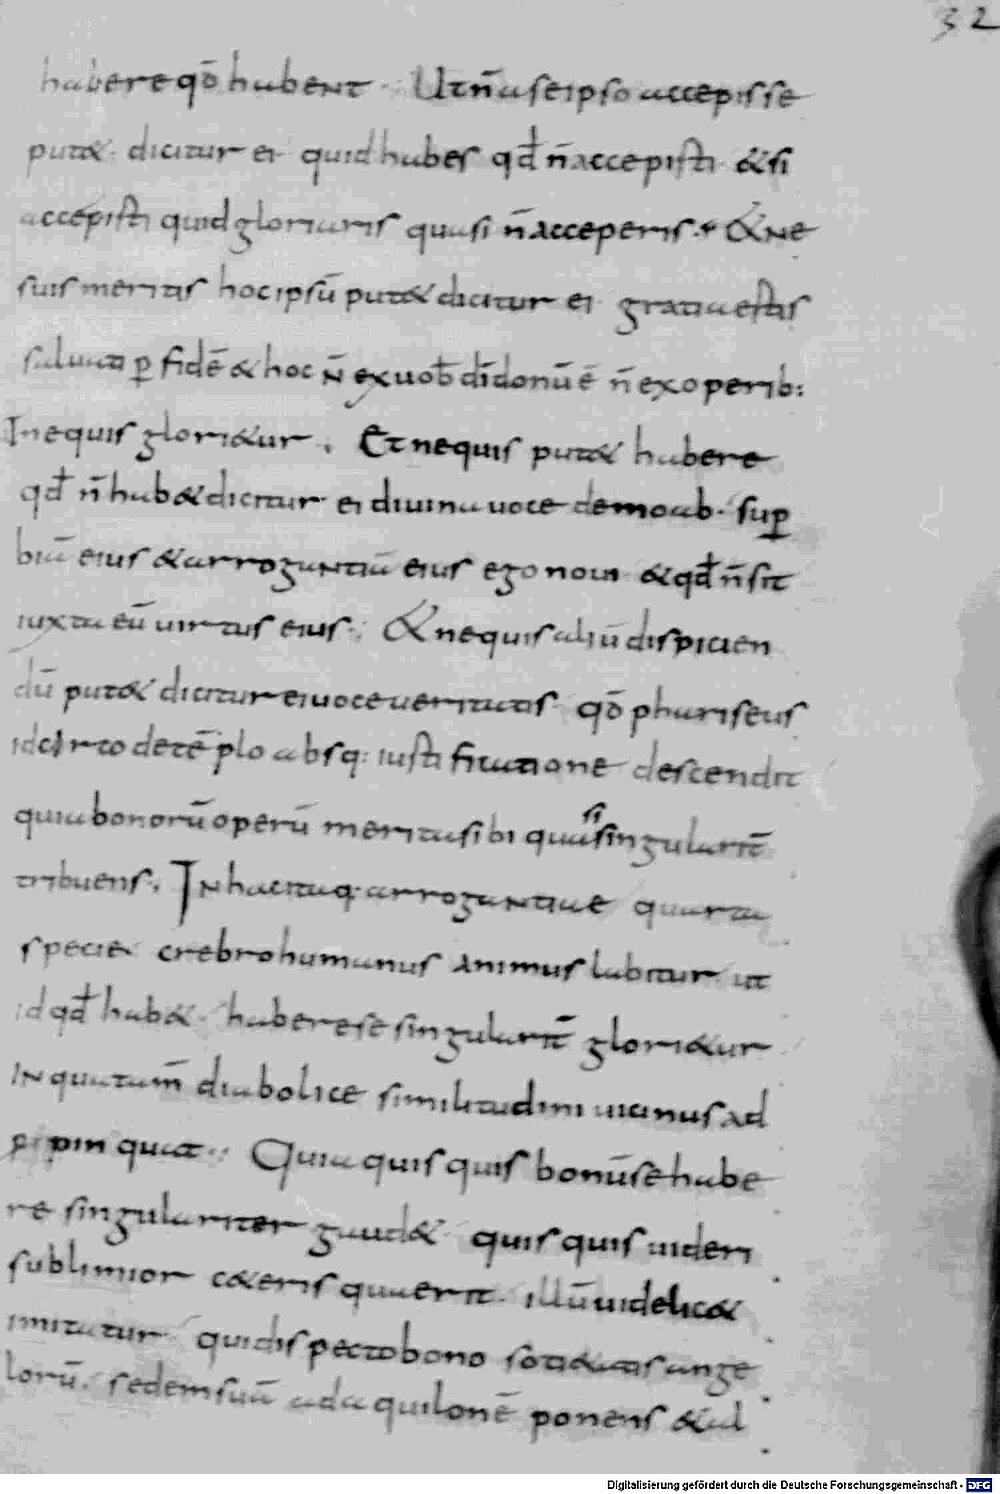 32
habere qđ habent. Ut n̄ a se ipso accepisse
put& dicitur ei quid habes qđ n̄ accepisti & si
accepisti quid gloriaris quasi n̄ acceperis. & ne
suis meritis hoc ipsū put& dicitur ei gratia estis
saluati p̱ fidē & hoc n̄ ex uob̄ dī donū ē n̄ ex operib:
Ne quis glori&ur. Et ne quis put& habere
qđ n̄ hab& dicitur ei diuina uoce de moab. sup̱
biā eius & arrogantiā eius ego noui & qđ n̄ sit
iuxta eū uirtus eius. & ne quis aliū dispicien
dū put& dicitur ei uoce ueritatis qđ phariseus
idcirco de tēplo absq: iustificatione descendit
quia bonorū operū merita sibi quasi singularit̄
tribuens. In hac itaq: arrogantiae quarta
specie crebro humanus animus labitur ut
id qđ hab& habere se singularit̄ glori&ur
In qua tam̄ diabolice similitudini uicinus ad
p̱pinquat. Quia quisquis bonū se habe
re singulariter gaud& quisquis uideri
sublimior c&eris quaerit illū uidelic&
imitatur qui dispecto bono soci&atis ange
lorū. sedem suā ad aquilonē ponens & al
Digitalisierung gefördert durch die Deutsche Forschungsgemeinschaft - DFG